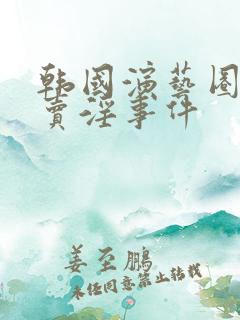 韩國演藝圈
賣淫事件
姜至鵬
未经同意禁止转载